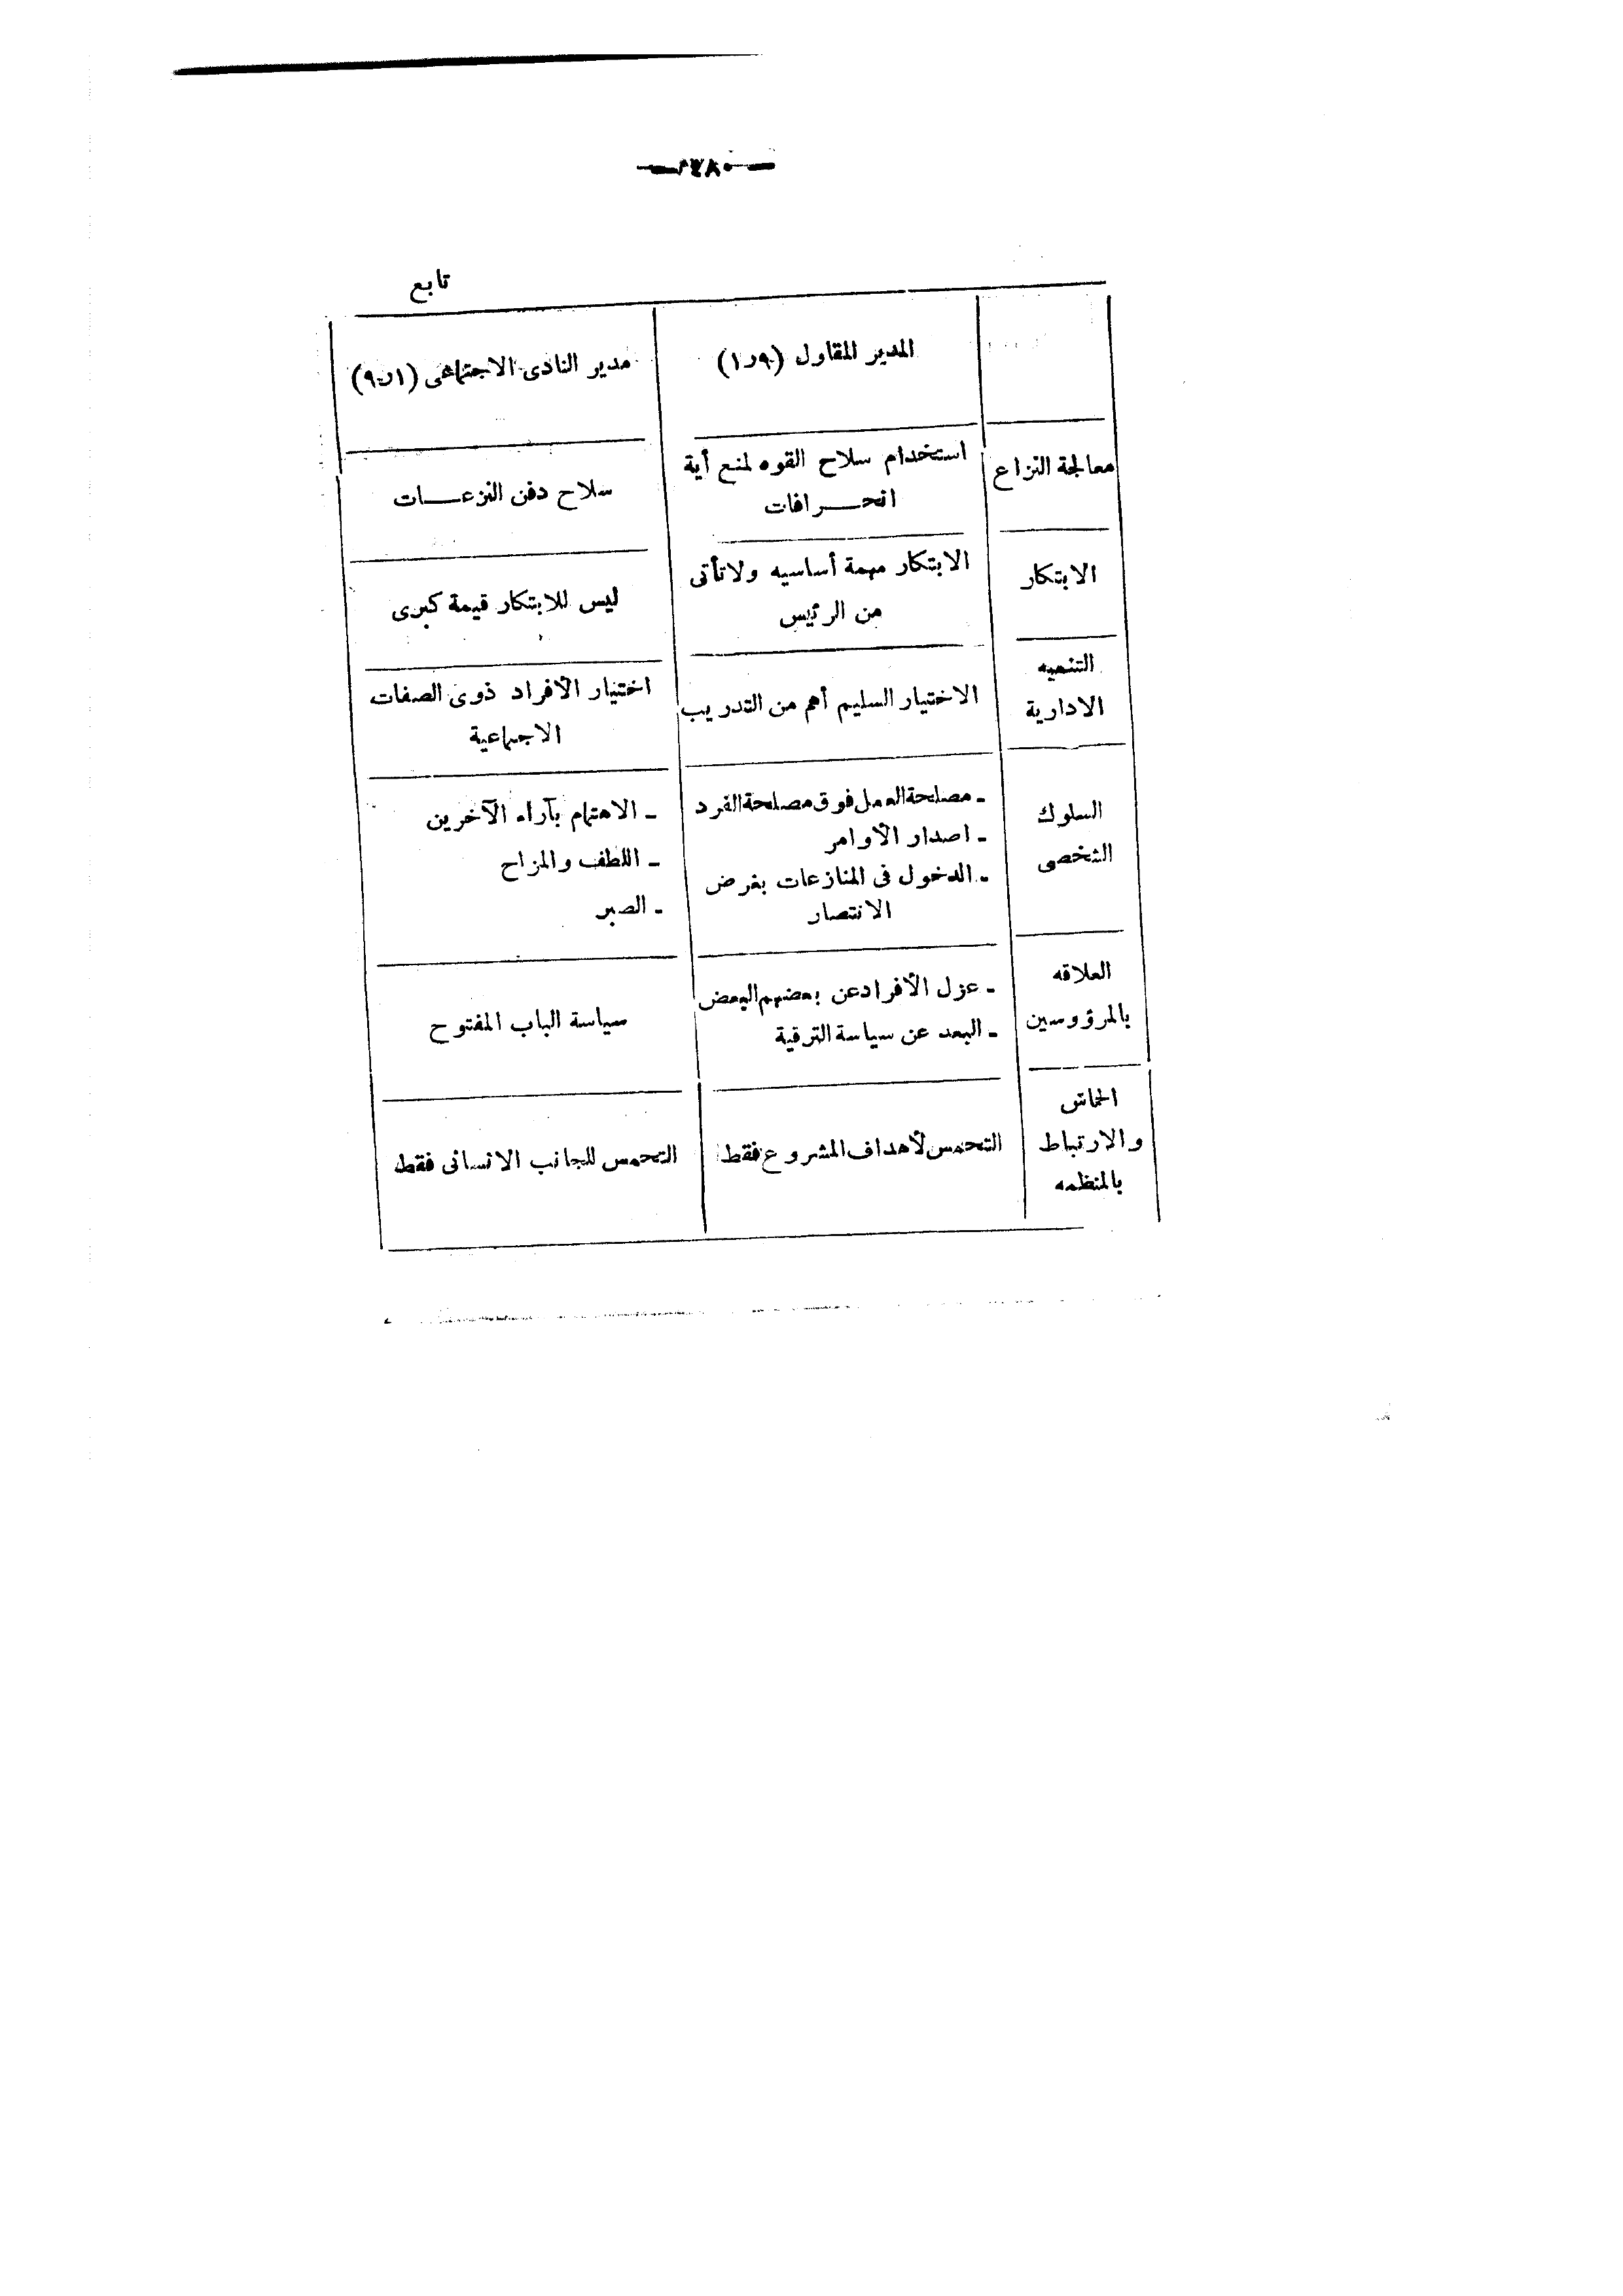 تابع
المدير المقاول (٩ر١)
مدير النادى الاجتماعى (١ر٩)
معالجة النزاع
استخدام سلاح القوه لمنع أية
انحـــرافات
سلاح دفن النزعـــات
الابتكار
الابتكار مهمة أساسيه ولاتأتى
من الرئيس
ليس للابتكار قيمة كبرى
التنميه
الادارية
الاختيار السليم أهم من التدريب
اختيار الأفراد ذوى الصفات
الاجتماعية
السلوك
الشخصى
ـ مصلحة العمل فوق مصلحة الفرد
ـ اصدار الأوامر
ـ الدخول فى المنازعات بغرض
الانتصار
ـ الاهتمام بآراء الآخرين
ـ اللطف والمزاح
ـ الصبر
العلاقه
بالمرؤوسين
ـ عزل الأفراد عن بعضهم البعض
ـ البعد عن سياسة الترقية
سياسة الباب المفتوح
الحماس
والارتباط
بالمنظمه
التحمس لأهداف المشروع فقط
التحمس للجانب الانسانى فقط